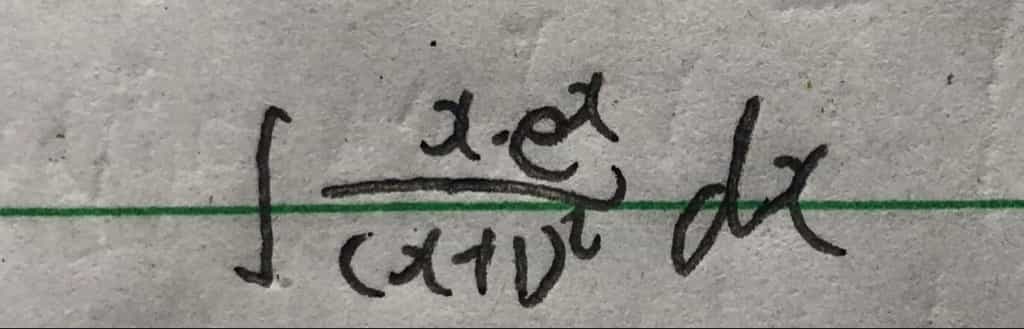 ∫ x·e^x / (x+1)^2 dx